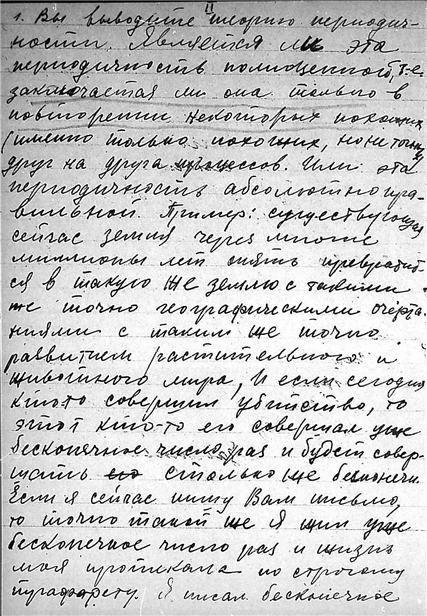 1. Вы выводите теорию периодич-
ности. Является ли эта
периодичность полноценной, т.е.
заключается ли она только в
повторении некоторых похожих
(именно только похожих, но не точных
друг на друга процессов. Или эта
периодичность абсолютно пра-
вильной. Пример: существующая
сейчас земля через многие
миллионы лет опять превратит-
ся в такую же землю с такими
же точно географическими очерта-
ниями с таким же точно
развитием растительного и
животного мира, и если сегодня
кто-то совершил убийство, то
этот кто-то его совершал уже
бесконечное число раз и будет совер-
шать его столько же бесконечн.
Если я сейчас пишу Вам письмо,
то точно такой же я жил уже
бесконечное число раз и жизнь
моя протекала по строгому
трафарету. Я писал бесконечное